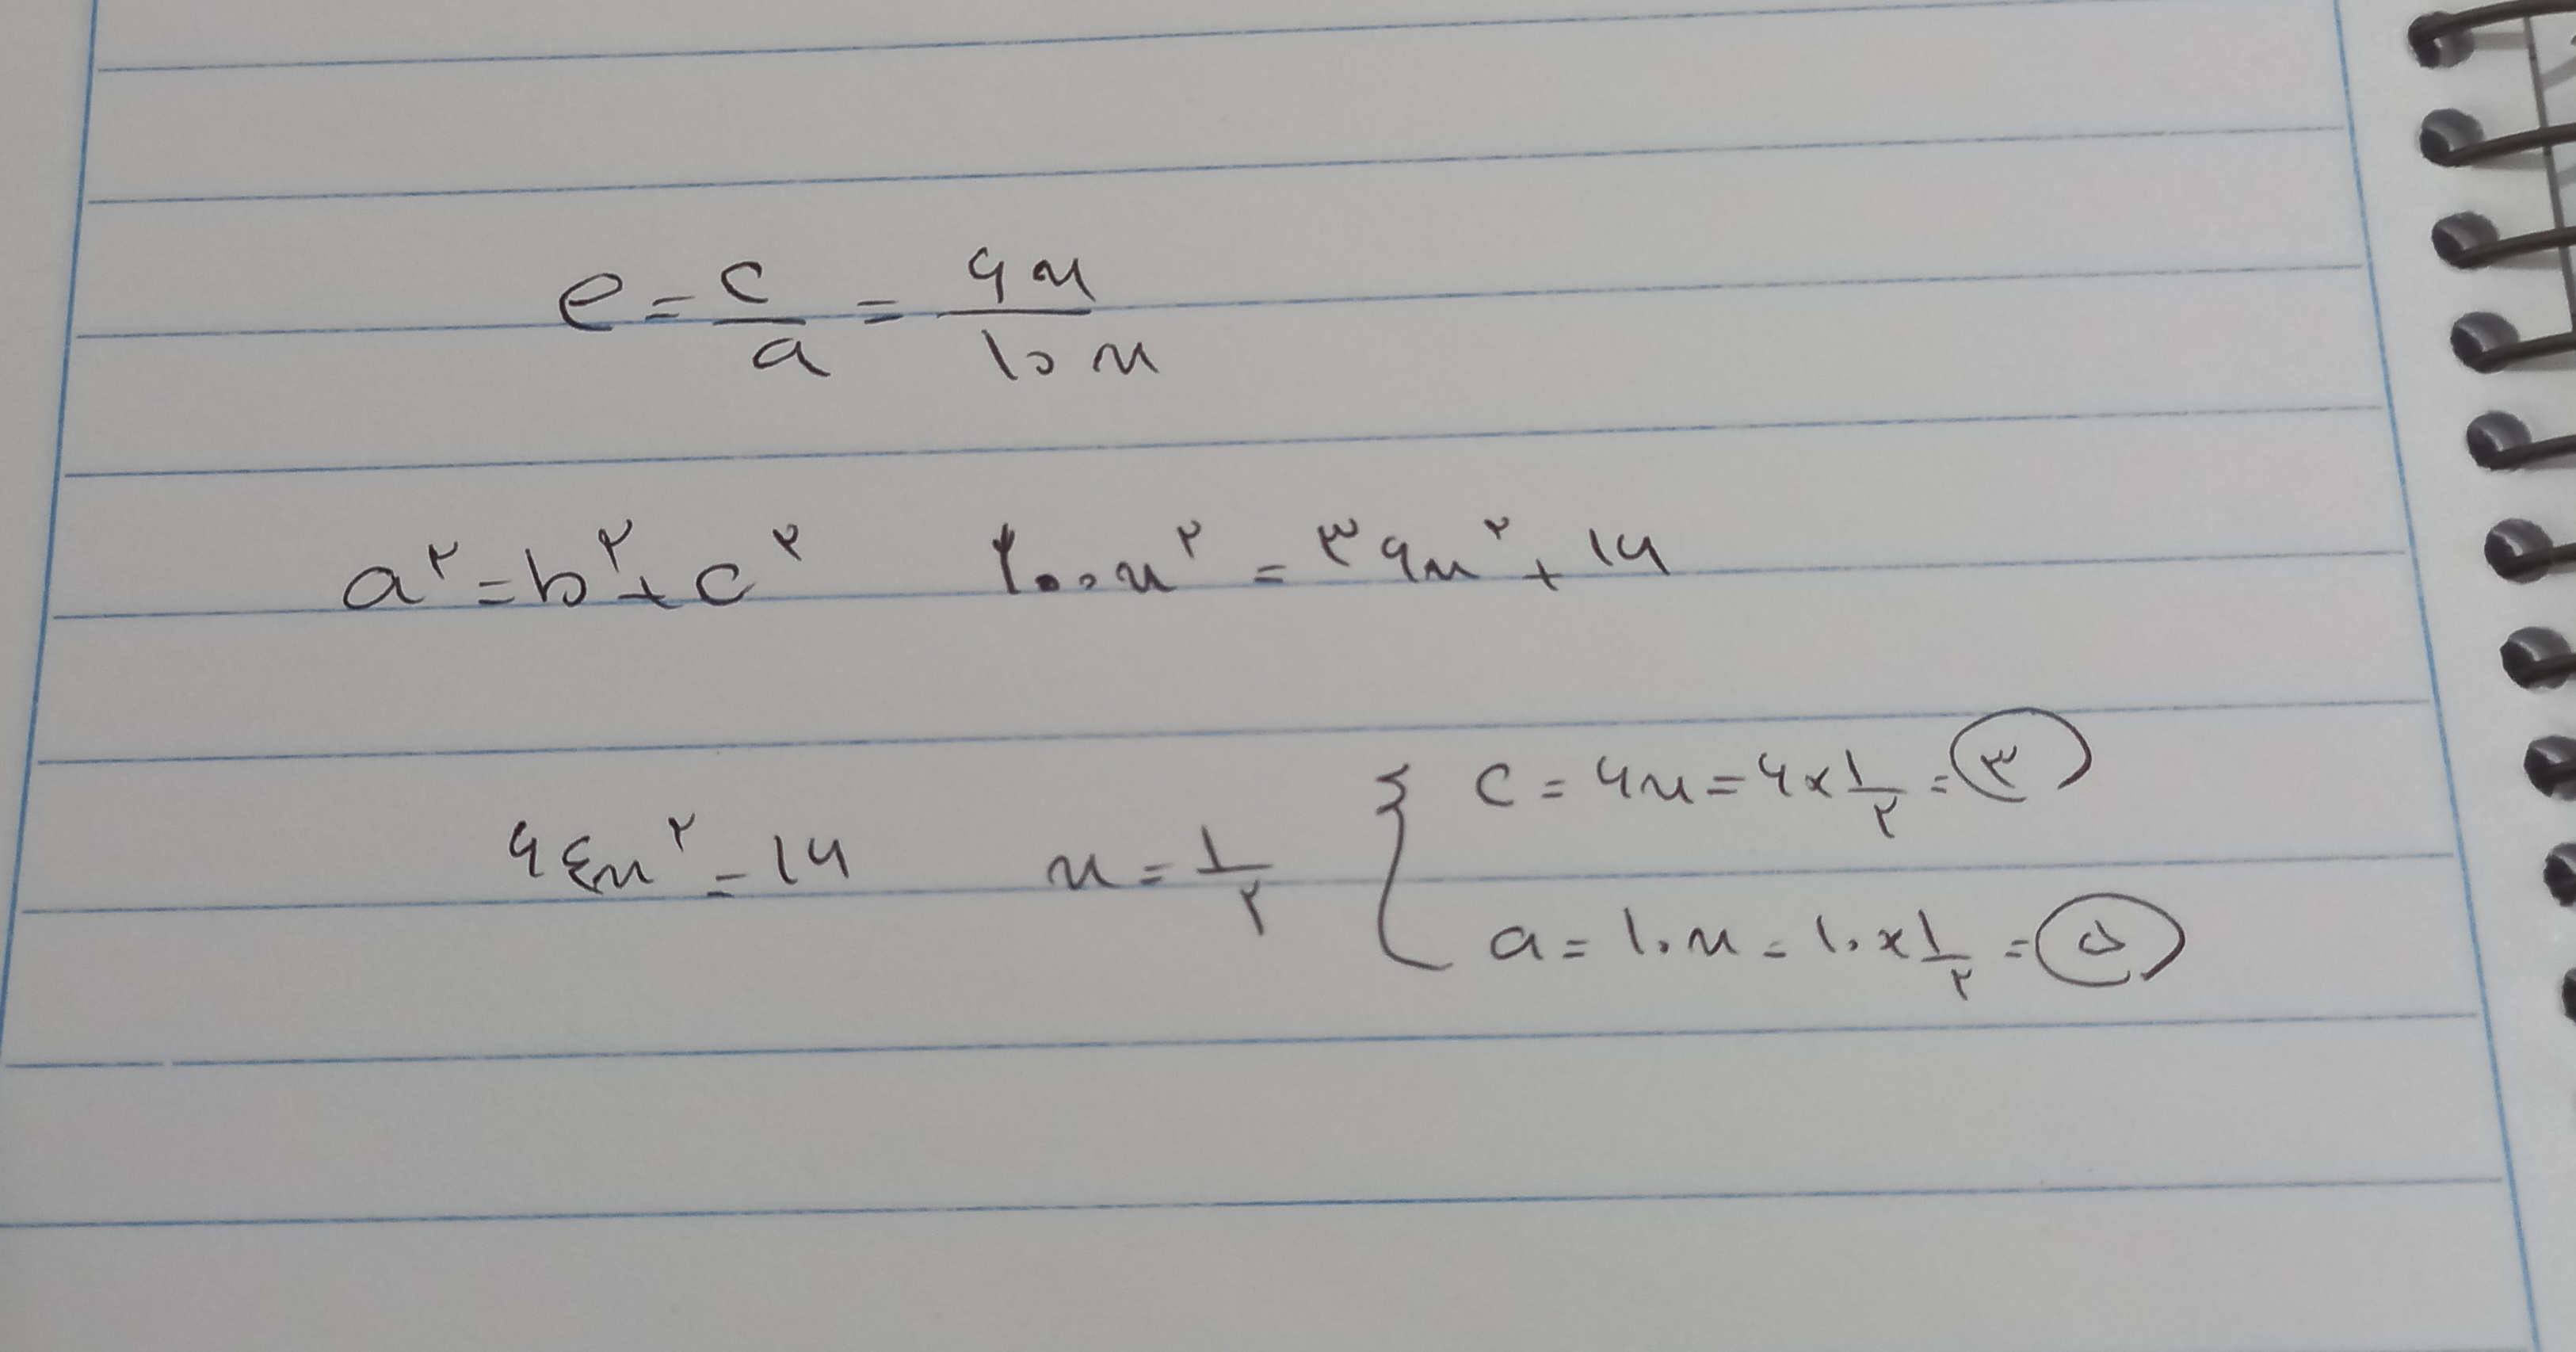 e = c/a = ۶x/۱۰x
a^۲ = b^۲ + c^۲ ۱۰۰x^۲ = ۳۶x^۲ + ۱۶
۶۴x^۲ = ۱۶ x = ۱/۲ { c = ۶x = ۶ × ۱/۲ = ۳
a = ۱۰x = ۱۰ × ۱/۲ = ۵